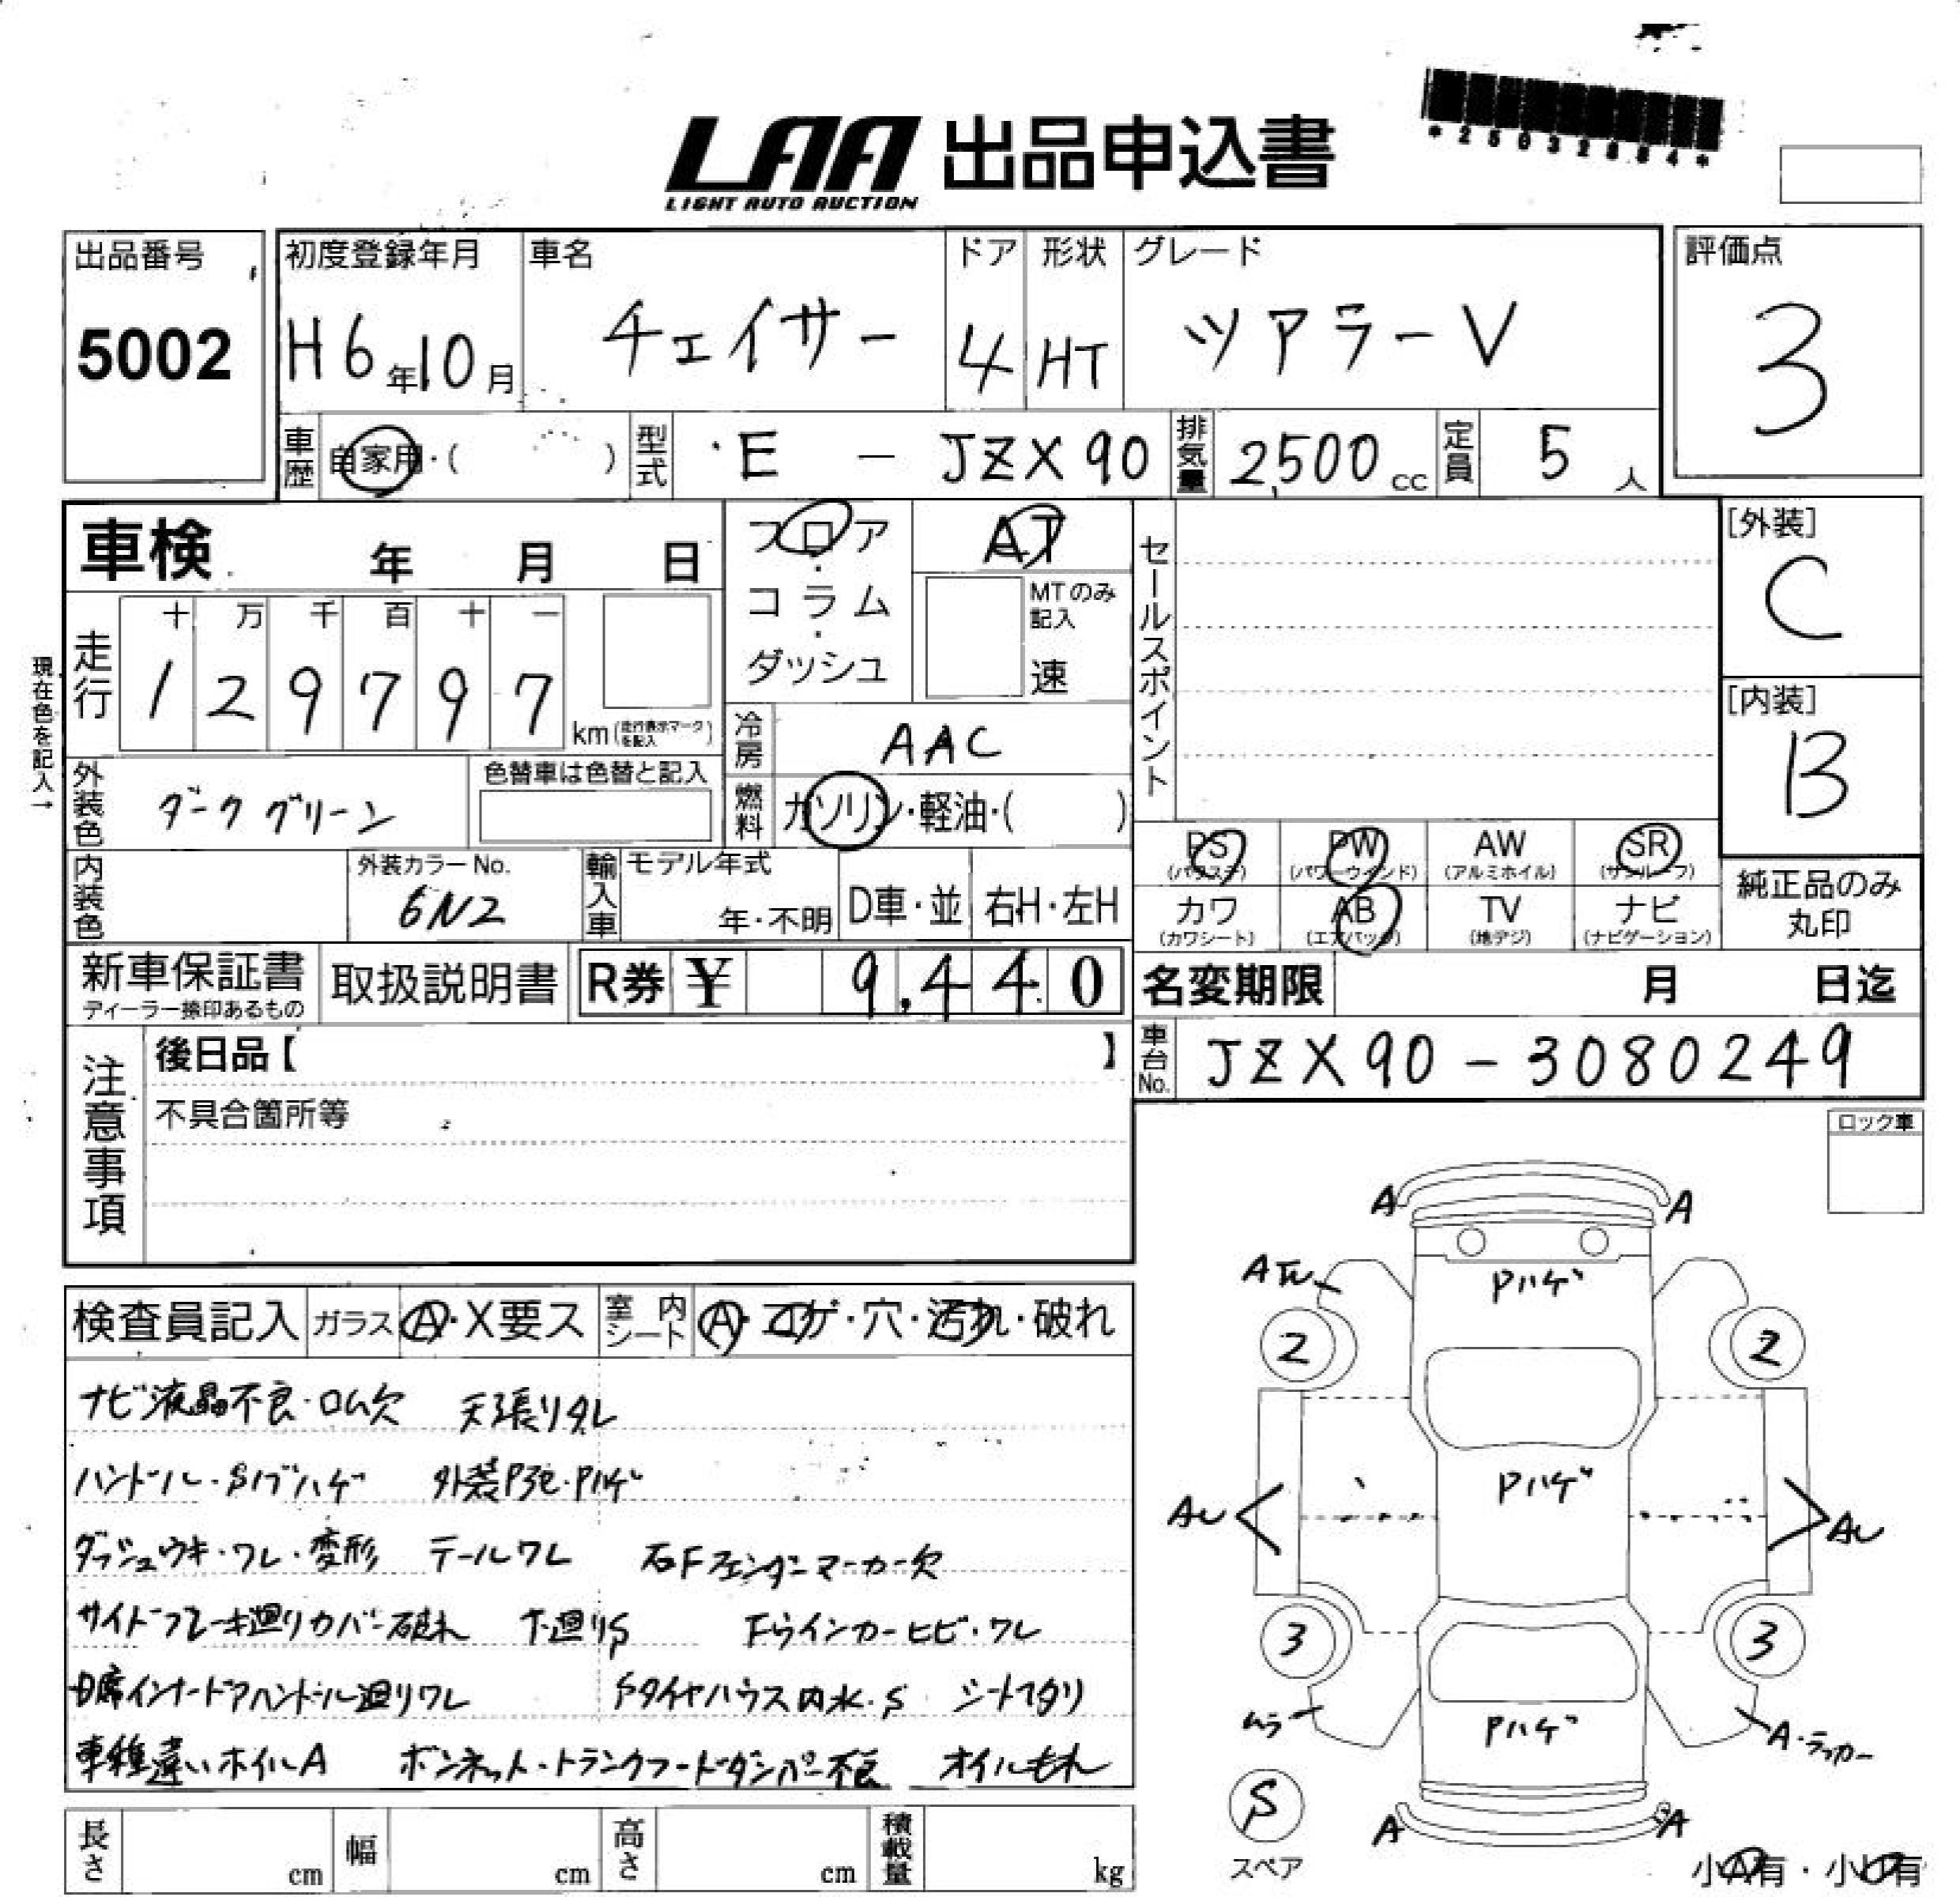 *25032884*
LAA 出品申込書
LIGHT AUTO AUCTION
出品番号 初度登録年月 車名 ドア 形状 グレード 評価点
5002 H6年10月 チェイサー 4 HT ツアラーV 3
車歴 自家用・( ) 型式 E - JZX90 排気量 2,500cc 定員 5人
車検 年 月 日 フロア・コラム・ダッシュ AT
MTのみ記入 速
セールスポイント
[外装] C
現在色を記入→
走行 十 万 千 百 十 一
1 2 9 7 9 7 km (走行表示マークを記入)
冷房 AAC
[内装] B
外装色 ダークグリーン 色替車は色替と記入
燃料 ガソリン・軽油・( )
PS (パワステ) PW (パワーウインド) AW (アルミホイル) SR (サンルーフ)
カワ (カワシート) AB (エアバッグ) TV (地デジ) ナビ (ナビゲーション)
純正品のみ丸印
内装色 外装カラーNo. 6N2 輸入車 モデル年式 年・不明 D車・並 右H・左H
新車保証書 ディーラー捺印あるもの 取扱説明書 R券 ¥ 9,440 名変期限 月 日迄
注意事項 後日品【 】
車台No. JZX90-3080249
不具合箇所等
ロック車
検査員記入 ガラス A・X要ス 室内シート A・コゲ・穴・汚れ・破れ
ナビ液晶不良・ロム欠 天張りタレ
ハンドル・Sノブハゲ 外装Pアセ・Pハゲ
ダッシュウキ・ワレ・変形 テールワレ 右Fフェンダーマーカー欠
サイドブレーキ廻りカバー破れ 下廻りS Fウインカーヒビ・ワレ
D席インナードアハンドル廻りワレ Sタイヤハウス内水・S シートヘタリ
車種違いホイルA ボンネット・トランクフードダンパー不良 オイルもれ
A A
Pハゲ
2 2
Pハゲ
AU AU
3 3
ムラ Pハゲ A・ラッカー
S
スペア
A A
小A有・小U有
長さ cm 幅 cm 高さ cm 積載量 kg